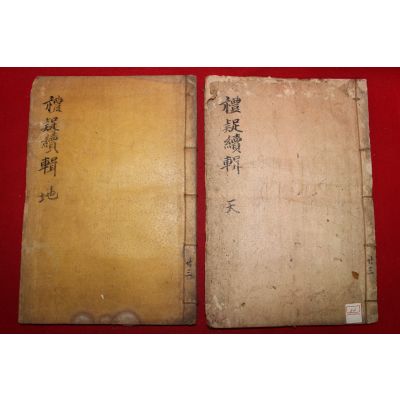 禮疑續輯 天
廿三
禮疑續輯 地
廿三